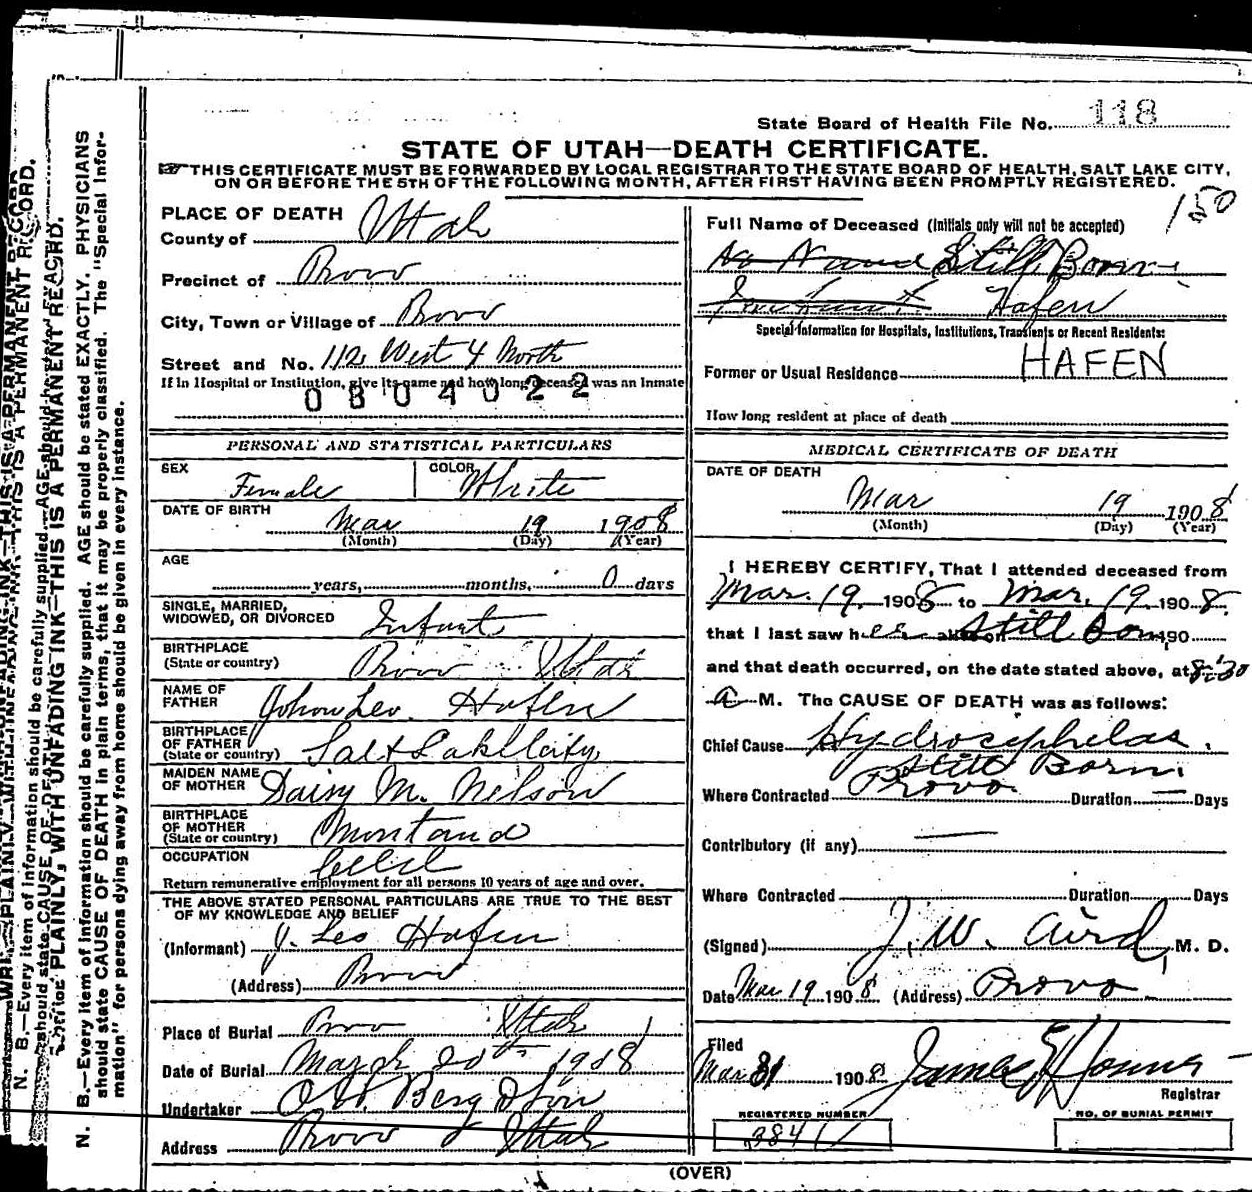 State Board of Health File No. 118
STATE OF UTAH—DEATH CERTIFICATE.
THIS CERTIFICATE MUST BE FORWARDED BY LOCAL REGISTRAR TO THE STATE BOARD OF HEALTH, SALT LAKE CITY,
ON OR BEFORE THE 5TH OF THE FOLLOWING MONTH, AFTER FIRST HAVING BEEN PROMPTLY REGISTERED.
150
PLACE OF DEATH
County of Utah
Precinct of Provo
City, Town or Village of Provo
Street and No. 112 West 4 North
If in Hospital or Institution, give its name and how long deceased was an Inmate
0804022
PERSONAL AND STATISTICAL PARTICULARS
SEX Female COLOR White
DATE OF BIRTH Mar 19 1908
(Month) (Day) (Year)
AGE
years, months, 0 days
SINGLE, MARRIED,
WIDOWED, OR DIVORCED Infant
BIRTHPLACE
(State or country) Provo Utah
NAME OF
FATHER John Leo. Hafen
BIRTHPLACE
OF FATHER
(State or country) Salt Lake City
MAIDEN NAME
OF MOTHER Daisy M. Nelson
BIRTHPLACE
OF MOTHER
(State or country) Montana
OCCUPATION
Return remunerative employment for all persons 10 years of age and over.
THE ABOVE STATED PERSONAL PARTICULARS ARE TRUE TO THE BEST
OF MY KNOWLEDGE AND BELIEF
(Informant) J. Leo Hafen
(Address) Provo
Place of Burial Provo Utah
Date of Burial March 20th 1908
Undertaker O.H. Berg & Son
Address Provo Utah
Full Name of Deceased (Initials only will not be accepted)
No Name Still Born
Infant Hafen
Special Information for Hospitals, Institutions, Transients or Recent Residents:
HAFEN
Former or Usual Residence
How long resident at place of death
MEDICAL CERTIFICATE OF DEATH
DATE OF DEATH
Mar 19 1908
(Month) (Day) (Year)
I HEREBY CERTIFY, That I attended deceased from
Mar. 19 1908 to Mar. 19 1908
that I last saw her alive on Still Born 190
and that death occurred, on the date stated above, at 8:30
a M. The CAUSE OF DEATH was as follows:
Chief Cause Hydrocephelas.
Still Born.
Where Contracted Provo Duration — Days
Contributory (if any) —
Where Contracted Duration Days
(Signed) J. W. Aird, M. D.
Date Mar 19 1908 (Address) Provo
Filed
Mar 31 1908 James
Registrar
REGISTERED NUMBER
384
NO. OF BURIAL PERMIT
(OVER)
N. B.—Every item of information should be carefully supplied. AGE should be stated EXACTLY. PHYSICIANS
should state CAUSE OF DEATH in plain terms, that it may be properly classified. The "Special Infor-
mation" for persons dying away from home should be given in every instance.
PLAINLY, WITH UNFADING INK—THIS IS A PERMANENT